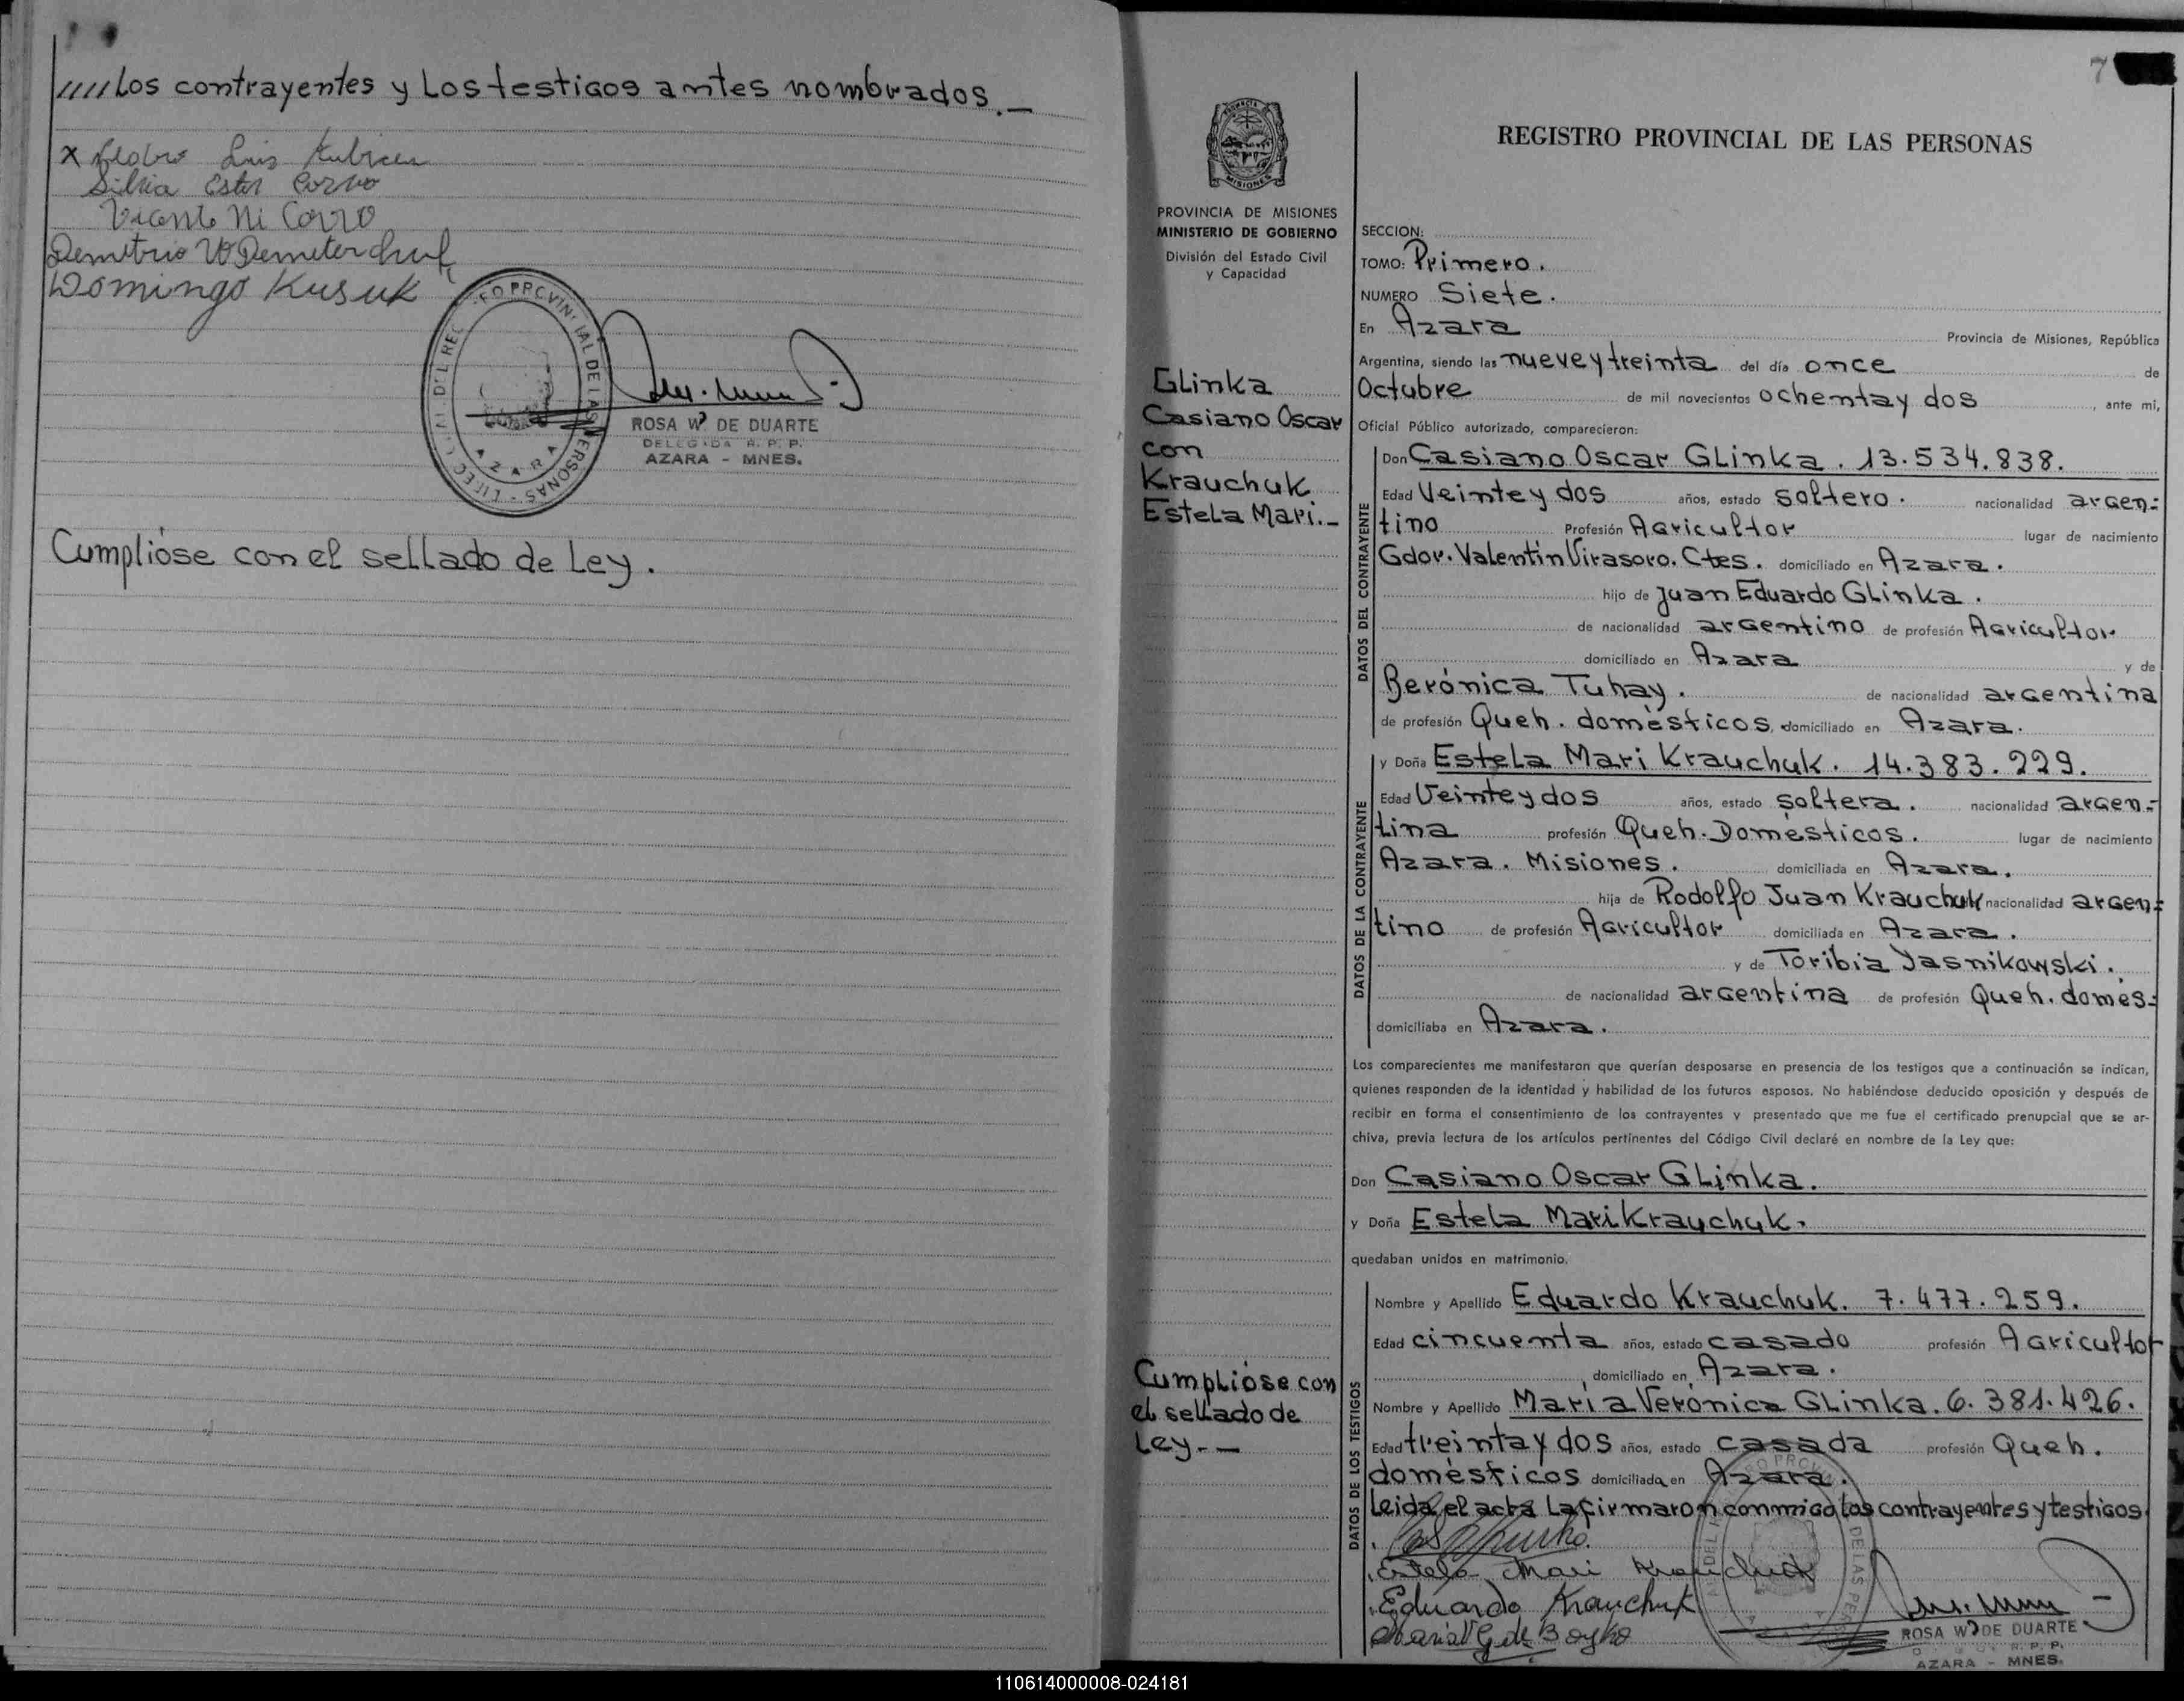 ////Los contrayentes y Los testigos antes nombrados._
x Luis
Silvia Ester Corro
Vicente Ni Corro
Demetrio W Demeterchuk
Domingo Kusuk
ROSA W. DE DUARTE
DELEGADA R. P. P.
AZARA - MNES.
Cumplióse con el sellado de Ley.
7
PROVINCIA DE MISIONES
MINISTERIO DE GOBIERNO
División del Estado Civil
y Capacidad
Glinka
Casiano Oscar
con
Krauchuk
Estela Mari._
Cumplióse con
el sellado de
Ley.-_
REGISTRO PROVINCIAL DE LAS PERSONAS
SECCION:
TOMO: Primero.
NUMERO Siete.
En Azara Provincia de Misiones, República
Argentina, siendo las nueve y treinta del día once de
Octubre de mil novecientos ochenta y dos, ante mi,
Oficial Público autorizado, comparecieron:
DATOS DEL CONTRAYENTE
Don Casiano Oscar Glinka. 13.534.838.
Edad Veinte y dos años, estado soltero. nacionalidad argen=
tino Profesión Agricultor lugar de nacimiento
Gdor. Valentín Virasoro. Ctes. domiciliado en Azara.
hijo de Juan Eduardo Glinka.
de nacionalidad argentino de profesión Agricultor
domiciliado en Azara y de
Berónica Tuhay. de nacionalidad argentina
de profesión Queh. domésticos, domiciliado en Azara.
DATOS DE LA CONTRAYENTE
y Doña Estela Mari Krauchuk. 14.383.229.
Edad Veinte y dos años, estado soltera. nacionalidad argen=
tina profesión Queh. Domésticos. lugar de nacimiento
Azara. Misiones. domiciliada en Azara.
hija de Rodolfo Juan Krauchuk nacionalidad argen=
tino de profesión Agricultor domiciliada en Azara.
y de Toribia Jasnikowski.
de nacionalidad argentina de profesión Queh. domés=
domiciliaba en Azara.
Los comparecientes me manifestaron que querían desposarse en presencia de los testigos que a continuación se indican,
quienes responden de la identidad y habilidad de los futuros esposos. No habiéndose deducido oposición y después de
recibir en forma el consentimiento de los contrayentes y presentado que me fue el certificado prenupcial que se ar-
chiva, previa lectura de los artículos pertinentes del Código Civil declaré en nombre de la Ley que:
Don Casiano Oscar Glinka.
y Doña Estela Mari Krauchuk.
quedaban unidos en matrimonio.
DATOS DE LOS TESTIGOS
Nombre y Apellido Eduardo Krauchuk. 7.477.259.
Edad cincuenta años, estado casado profesión Agricultor
domiciliado en Azara.
Nombre y Apellido María Verónica Glinka. 6.381.426.
Edad treinta y dos años, estado casada profesión Queh.
domésticos domiciliada en Azara.
leida el acta La firmaron conmigo los contrayentes y testigos
Estela Mari Krauchuk
Eduardo Krauchuk
Maria V G de Boyko
ROSA W. DE DUARTE
R. P. P.
AZARA - MNES.
110614000008-024181